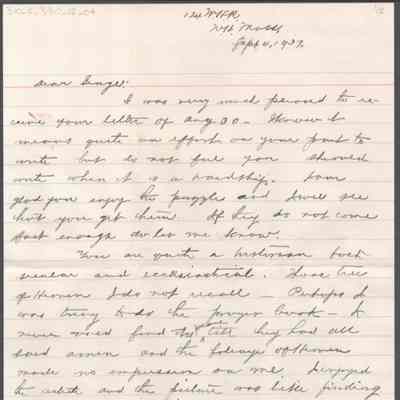 Sept 4, 1937.
Dear Ginger:
I was very much pleased to re-
ceive your letter of Aug 30. However it
means quite an effort on your part to
write but do not feel you should
write when it is a hardship. I am
glad you enjoy the puzzle and I will see
that you get them. If they do not come
fast enough do let me know.
You are quite a historian both
secular and ecclesiastical. Those
of Heaven I do not recall — Perhaps I
was trying to do the prayer book — I
never could find the till they had all
said amen and the foliage of Heaven
made no impression on me. I enjoyed
the and the picture was like finding